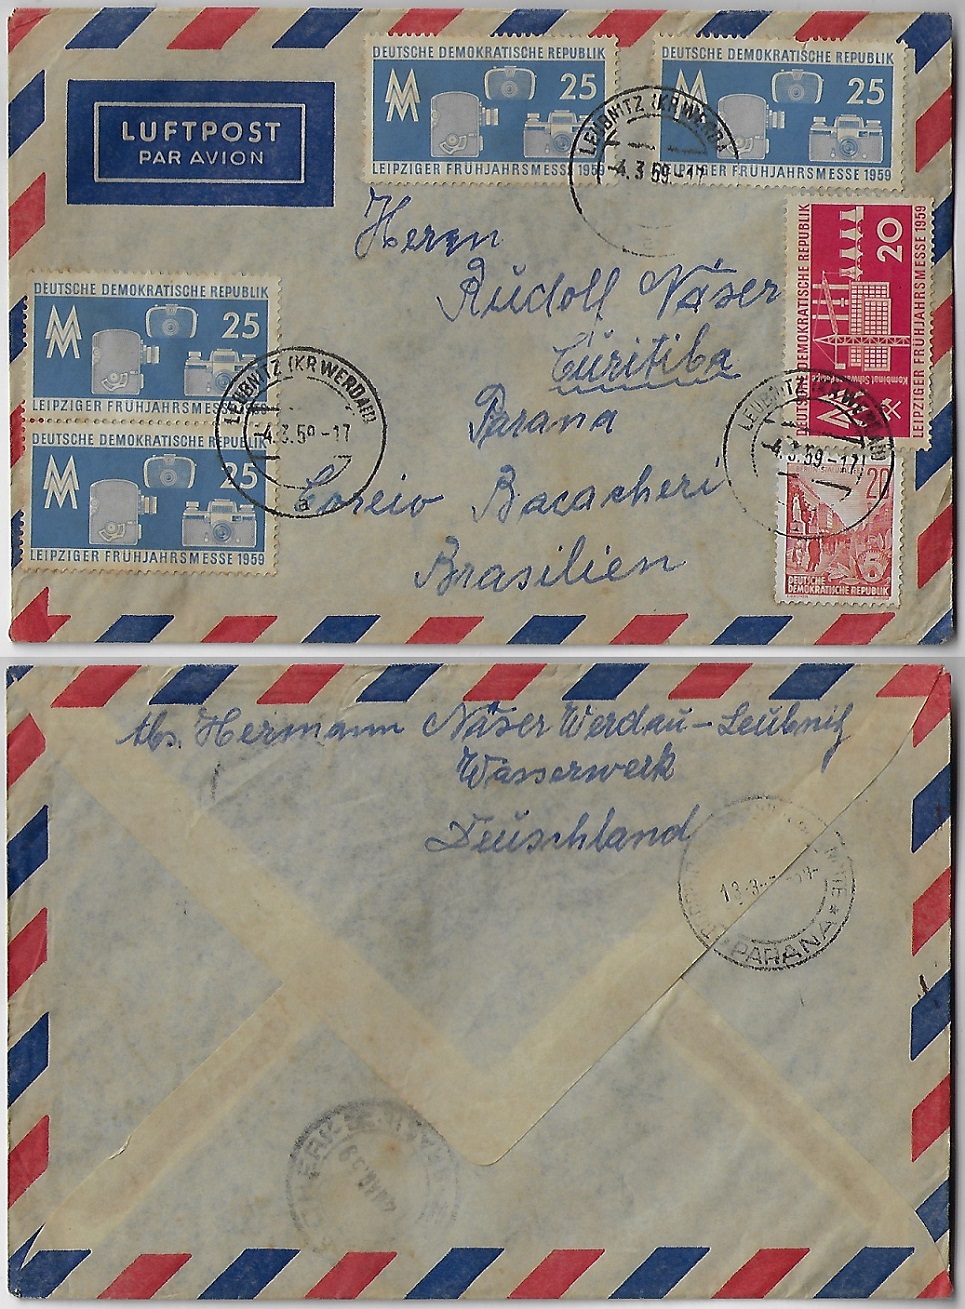 LUFTPOST
PAR AVION
DEUTSCHE DEMOKRATISCHE REPUBLIK
MM
25
LEIPZIGER FRÜHJAHRSMESSE 1959
DEUTSCHE DEMOKRATISCHE REPUBLIK
MM
25
LEIPZIGER FRÜHJAHRSMESSE 1959
LEUBNITZ (KR WERDAU)
-4.3.59.-17
Herrn
Rudolf Näser
Curitiba
Parana
Correio Bacacheri
Brasilien
DEUTSCHE DEMOKRATISCHE REPUBLIK
20
Kombinat Schwarze
LEIPZIGER FRÜHJAHRSMESSE 1959
LEUBNITZ (KR WERDAU)
-4.3.59-17
20
5
DEUTSCHE
DEMOKRATISCHE REPUBLIK
DEUTSCHE DEMOKRATISCHE REPUBLIK
MM
25
LEIPZIGER FRÜHJAHRSMESSE 1959
DEUTSCHE DEMOKRATISCHE REPUBLIK
MM
25
LEIPZIGER FRÜHJAHRSMESSE 1959
LEUBNITZ (KR WERDAU)
-4.3.59-17
a
Abs. Hermann Näser Werdau-Leubnitz
Wasserwerk
Deutschland
PARANA